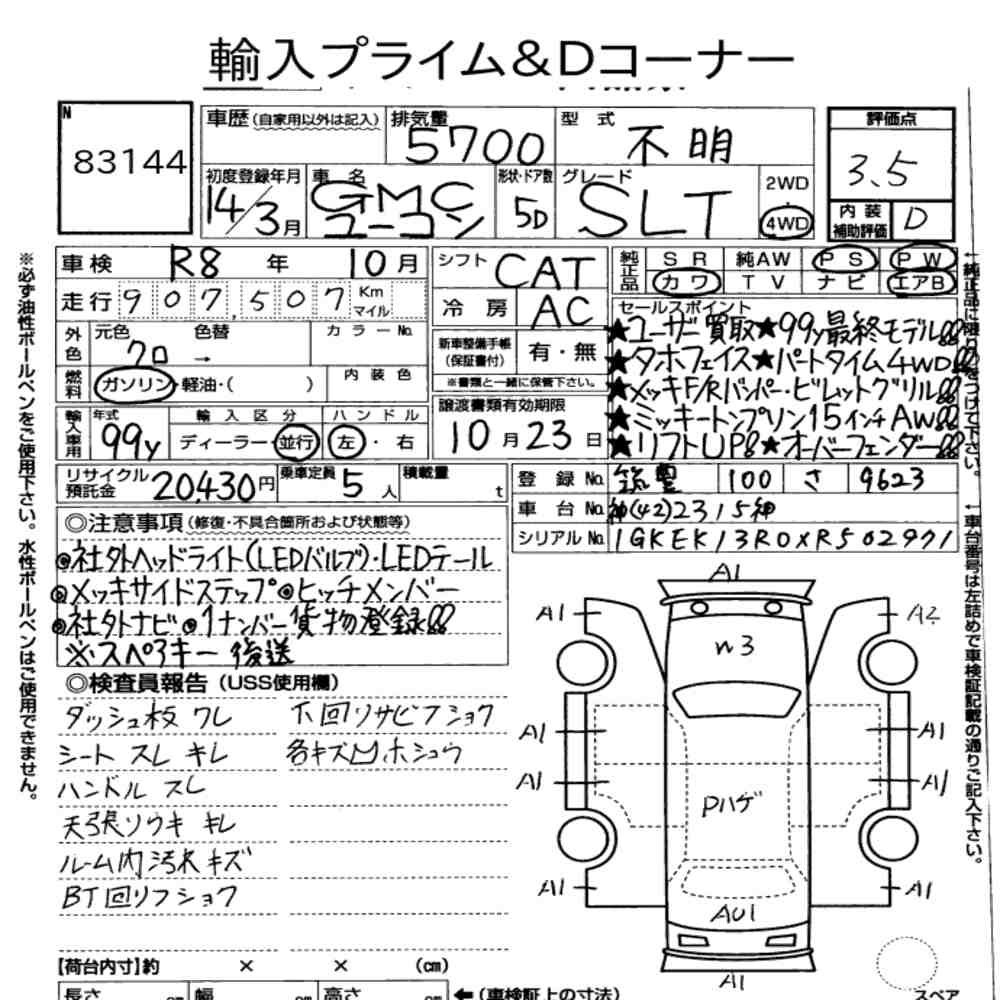 輸入プライム&Dコーナー
N
83144
車歴(自家用以外は記入)
排気量
5700
型式
不明
評価点
3.5
初度登録年月
14/3月
車名
GMC
ユーコン
形状・ドア数
5D
グレード
SLT
2WD
・
4WD
内装
補助評価
D
車検 R8年 10月
走行 907,507 Km マイル
シフト CAT
冷房 AC
純正品
SR 純AW PS PW
カワ TV ナビ エアB
外色
元色 色替
クロ →
カラーNo.
燃料
ガソリン・軽油・( )
内装色
新車整備手帳
(保証書付)
有・無
※書類と一緒に保管下さい。
セールスポイント
★ユーザー買取★99y最終モデル!!
★タホフェイス★パートタイム4WD!!
★メッキF/Rバンパー・ビレットグリル!!
★ミッキートンプソン15インチAW!!
★リフトUP!!★オーバーフェンダー!!
輸入車用
年式
99y
輸入区分
ディーラー・並行
ハンドル
左・右
譲渡書類有効期限
10月23日
リサイクル
預託金
20,430円
乗車定員
5人
積載量
t
登録No. 100 さ 9623
車台No. 神(42)2315神
シリアルNo. 1GKEK13R0XR502971
◎注意事項(修復・不具合箇所および状態等)
◎社外ヘッドライト(LEDバルブ)・LEDテール
◎メッキサイドステップ◎ヒッチメンバー
◎社外ナビ◎1ナンバー貨物登録!!
※スペアキー後送
◎検査員報告(USS使用欄)
ダッシュ板 ワレ
シート スレ キレ
ハンドル スレ
天張ソウキ キレ
ルーム内汚れ キズ
BT回リフショク
下回リサビフショク
各キズ凹ホショウ
A1
A1
A2
W3
A1
A1
A1
A1
Pハゲ
A1
A1
AU1
A1
スペア
【荷台内寸】約 × × (cm)
長さ cm 幅 cm 高さ cm
←(車検証上の寸法)
※必ず油性ボールペンをご使用下さい。水性ボールペンはご使用できません。
←純正品に限り○をつけて下さい。
←車台番号は左詰めで車検証記載の通りご記入下さい。